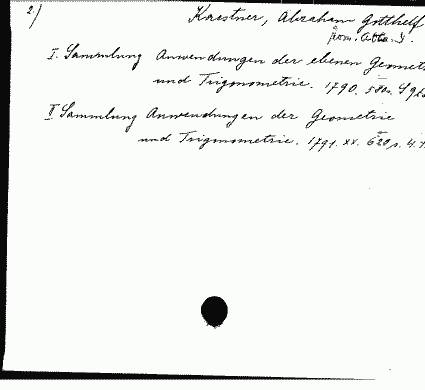 2/ Kaestner, Abraham Gotthelf
I. Sammlung Anwendungen der ebenen Geomet
und Trigonometrie. 1790.
II Sammlung Anwendungen der Geometrie
und Trigonometrie. 1791. xx. 620 s.